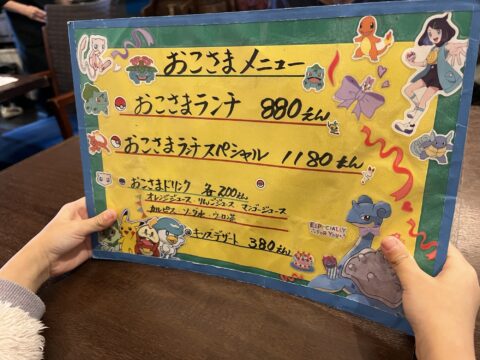 おこさまメニュー
おこさまランチ 880えん
おこさまランチスペシャル 1180えん
おこさまドリンク 各200えん
オレンジジュース りんごジュース マンゴージュース
カルピス ソーダ水 ウーロン茶
キッズデザート 380えん
ESPECIALLY
FOR YOU